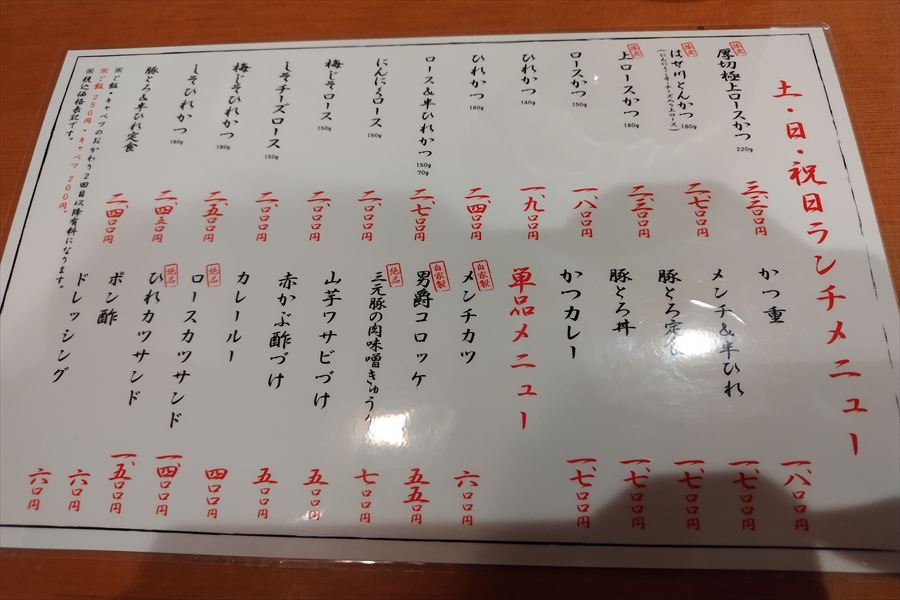 土・日・祝日ランチメニュー
限定 厚切極上ロースかつ 220g 三、三〇〇円
限定 はせ川とんかつ 180g 二、七〇〇円
(にんにく・しそ・チーズ入り上ロース)
限定 上ロースかつ 180g 二、三〇〇円
ロースかつ 150g 一、八〇〇円
ひれかつ 140g 一、九〇〇円
ひれかつ 180g 二、四〇〇円
ロース&半ひれかつ 150g 70g 二、七〇〇円
にんにくロース 150g 二、〇〇〇円
梅じそロース 150g 二、〇〇〇円
しそチーズロース 150g 二、〇〇〇円
梅じそひれかつ 180g 二、五〇〇円
しそひれかつ 180g 二、四五〇円
豚とろ&半ひれ定食 二、四〇〇円
※ご飯・キャベツのおかわり2回目以降有料になります。
※ご飯 250円・キャベツ 200円。
※税込価格表記です。
かつ重 一、八〇〇円
メンチ&半ひれ 一、七〇〇円
豚とろ定食 一、七〇〇円
豚とろ丼 一、七〇〇円
かつカレー 一、七〇〇円
単品メニュー
自家製 メンチカツ 六〇〇円
自家製 男爵コロッケ 五五〇円
絶品 三元豚の肉味噌きゅうり 七〇〇円
山芋ワサビづけ 五〇〇円
赤かぶ酢づけ 五〇〇円
カレールー 四〇〇円
絶品 ロースカツサンド 一、四〇〇円
絶品 ひれカツサンド 一、五〇〇円
ポン酢 六〇円
ドレッシング 六〇円